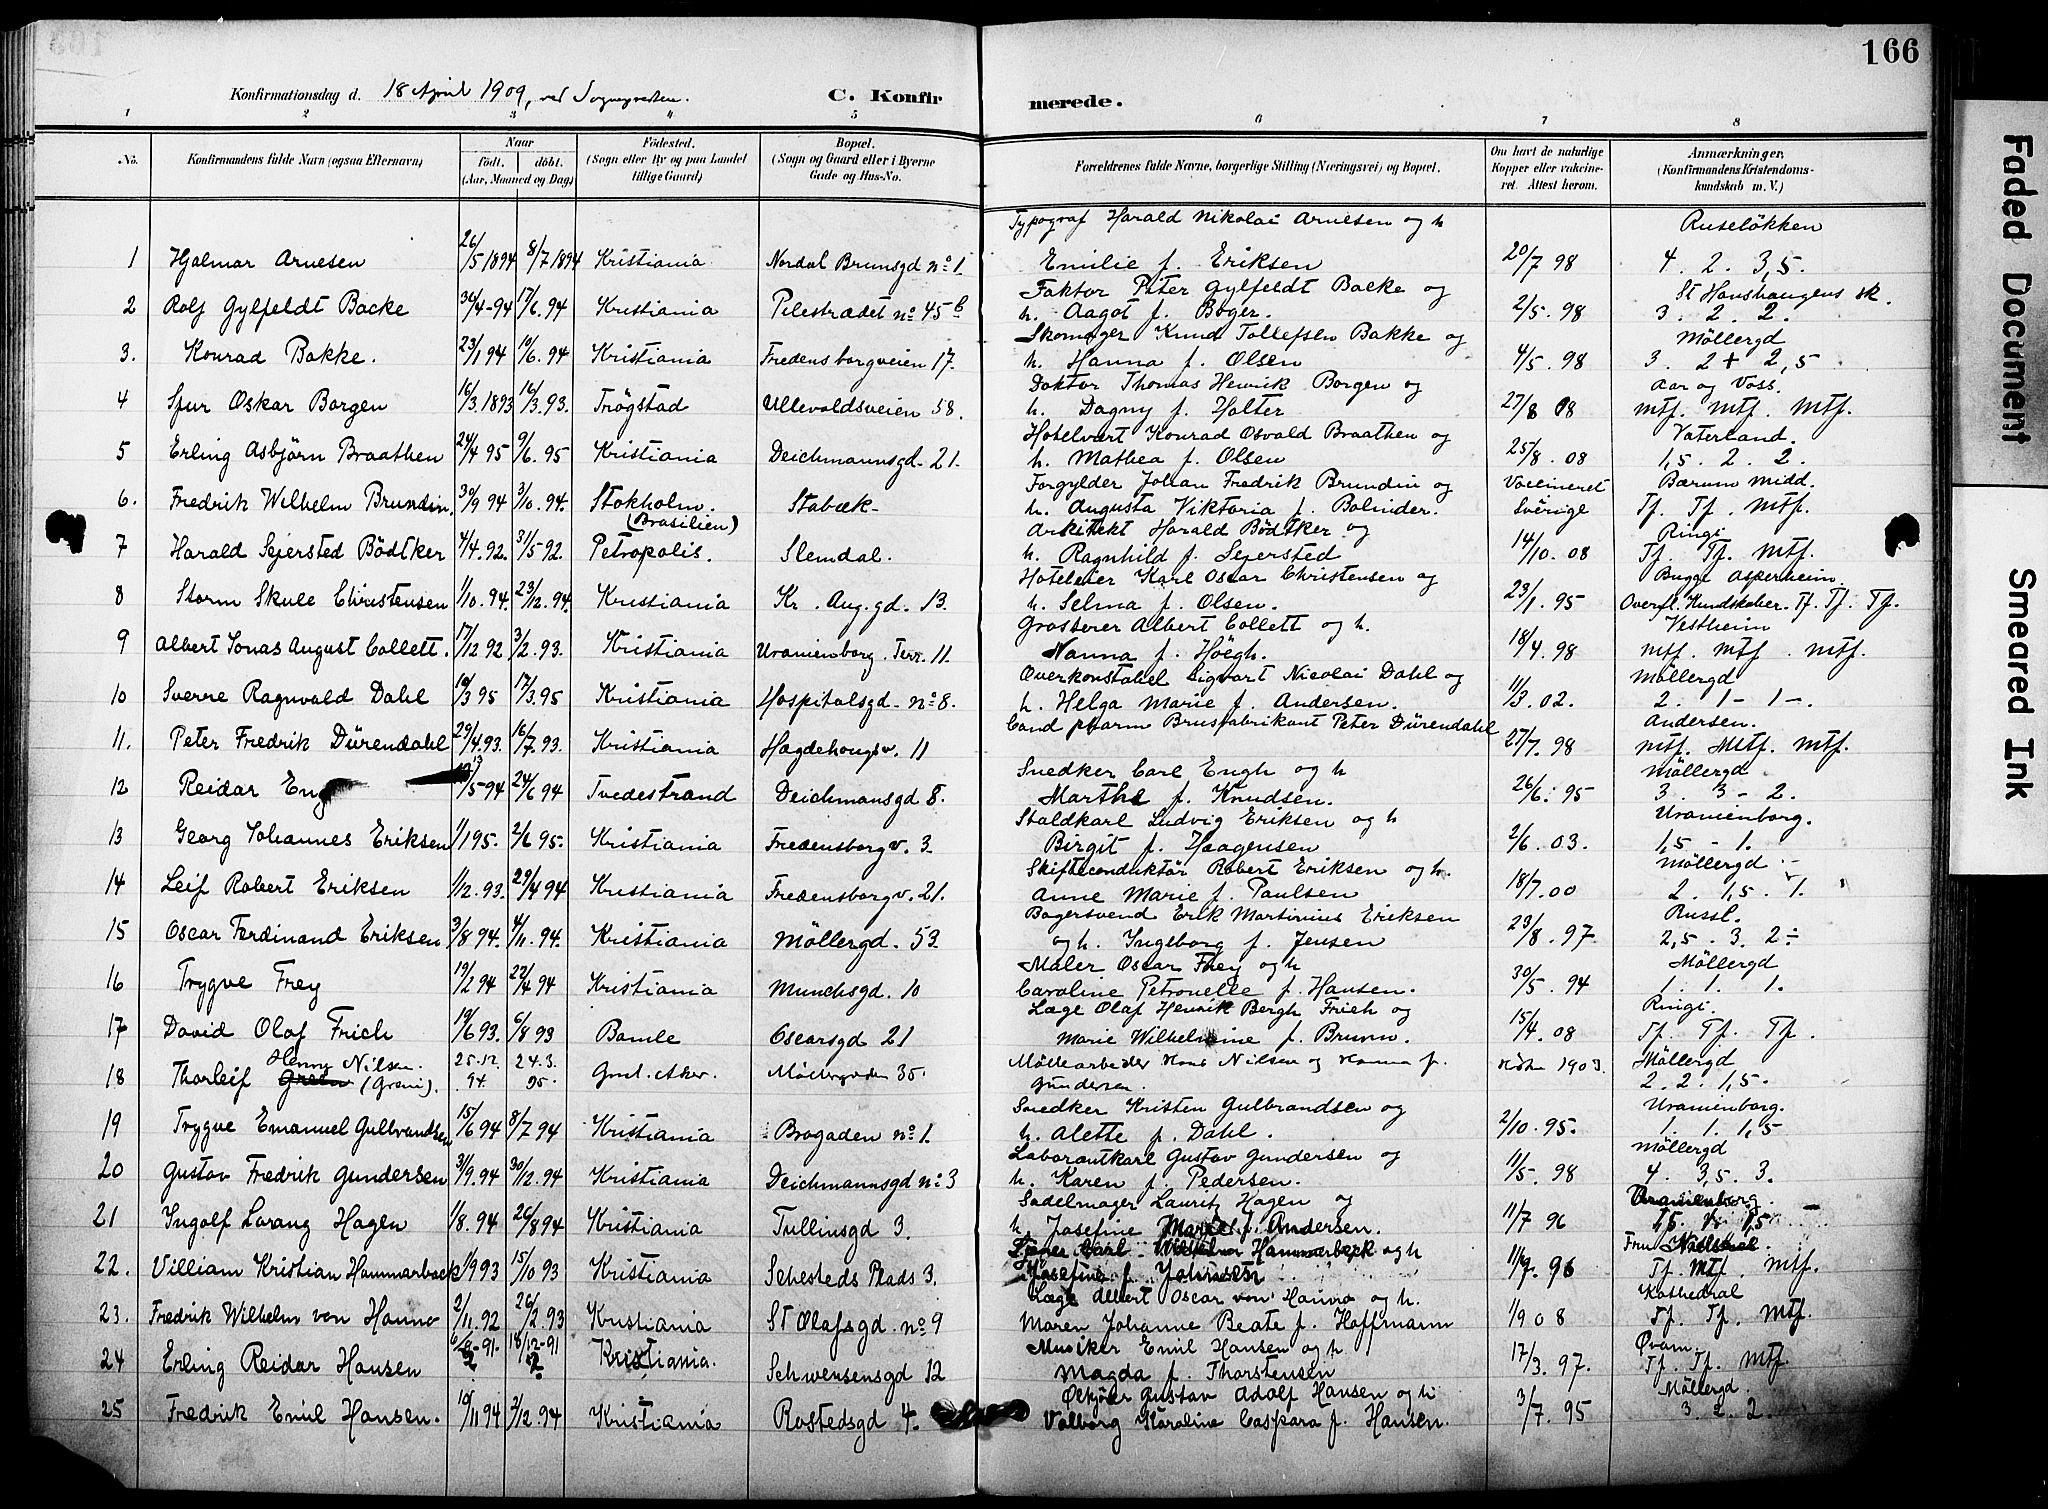 166
Konfirmationsdag d. 18 April 1909, ved Sognepresten. C. Konfirmerede.
1 2 3 4 5 6 7 8
No. Konfirmandens fulde Navn (ogsaa Efternavn) Naar født. døbt. (Aar, Maaned og Dag) Fødested. (Sogn eller By og paa Landet tillige Gaard) Bopæl. (Sogn og Gaard eller i Byerne Gade og Hus-No. Forældrenes fulde Navne, borgerlige Stilling (Næringsvei) og Bopæl. Om havt de naturlige Kopper eller vakcineret. Attest herom. Anmærkninger. (Konfirmandens Kristendomskundskab m. V.)
1 Hjalmar Arnesen 26/5 1894 8/7 1894 Kristiania Nordal Brunsgd no 1. Typograf Harald Nikolai Arnesen og h Emilie f. Eriksen 20/7 98 Ruseløkken 4. 2. 3,5.
2 Rolf Gylfeldt Backe 30/4-94 17/6. 94 Kristiania Pilestrædet no 45 b Faktor Peter Gylfeldt Backe og h. Aagot f. Boger. 2/5. 98 St Hanshaugens sk. 3. 2. 2.
3. Konrad Bakke. 23/1 94 10/6. 94 Kristiania Fredensborgveien 17. Skomager Knud Tollefsen Bakke og h. Hanna f. Olsen 4/5. 98 Möllergd 3. 2+ 2,5
4 Sjur Oskar Borgen 16/3. 1893 16/3. 93. Trøgstad Ullevoldsveien 58. Doktor Thomas Henrik Borgen og h. Dagny f. Holter 27/8 08 Aar og Voss. mtf. mtf. mtf.
5 Erling Asbjörn Braathen 24/4 95 9/6. 95 Kristiania Deichmannsgd. 21. Hotelvert Konrad Osvald Braathen og h. Mathea f. Olsen 25/8. 08 Vaterland. 1,5. 2. 2.
6. Fredrik Wilhelm Brundin. 30/9 94 3/10. 94. Stokholm. Stabæk Forgylder Johan Fredrik Brundin og h. Augusta Viktoria f. Bolinder. Vaccineret Sverige Bærum midd. Tf. Tf. mtf.
7 Harald Sejersted Bödtker 4/4. 92. 31/5 92. (Brasilien) Petropolis. Slemdal. Arkitekt Harald Bödtker og h. Ragnhild f. Sejersted 14/10. 08 Ringi Tf. Tf. mtf.
8 Storm Skule Christensen 1/10. 94. 23/12. 94. Kristiania Kr. Aug. gd. 13. Hoteleier Karl Oscar Christensen og h. Selma f. Olsen. 23/1. 95 Bugge Asperheim. Overfl. Kundskaber. Tf. Tf. Tf.
9 Albert Jonas August Collett. 17/12 92 3/2. 93. Kristiania Uranienborg. Terr. 11. Grosserer Albert Collett og h. Nanna f. Höegh. 18/4. 98 Vestheim mtf. mtf. mtf.
10 Sverre Ragnvald Dahl 3 95 17/3. 95 Kristiania Hospitalsgd. no 8. Overkonstabel Sigvart Nicolai Dahl og h. Helga Marie f. Andersen. 11/3. 02. Möllergd 2. 1- 1-.
11. Peter Fredrik Dürendahl 29/4. 93. 16/7. 93. Kristiania Hægdehougsv. 11 Cand pharm Brusfabrikant Peter Dürendahl 27/7. 98 Andersen. mtf. mtf. mtf.
12 Reidar Eng 5-94 24/6 94 Tvedestrand Deichmansgd 8. Snedker Carl Engh og h Marthe f. Knudsen. 26/6. 95 Möllergd 3. 3- 2.
13 Georg Johannes Eriksen 1/1 95. 2/6 95. Kristiania Fredensborgv. 3. Staldkarl Ludvig Eriksen og h Birgit f. Haagensen 2/6. 03. Uranienborg. 1,5 - 1.
14 Leif Robert Eriksen 1/12. 93. 29/4 94 Kristiania Fredensborgv. 21. Skifteconduktör Robert Eriksen og h. Anne Marie f. Paulsen 18/7. 00 Möllergd 2. 1,5. 1.
15 Oscar Ferdinand Eriksen 3/8 94. 4/11. 94. Kristiania Möllergd. 53. Bagersvend Erik Martinius Eriksen og h. Ingeborg f. Jensen 23/8. 97. Russl. 2,5. 3. 2÷
16 Trygve Frey 19/2 94 22/4 94 Kristiania Munchsgd. 10 Maler Oscar Frey og h Caroline Petronelle f. Hansen. 30/5. 94 Möllergd 1. 1. 1.
17 David Olaf Frich 19/6 93. 6/8 93 Bamle Oscarsgd 21 Læge Olaf Henrik Bergh Frich og Marie Wilhelmine f. Bruun. 15/4. 08 Ringi. Tf. Tf. Tf.
18 Thorleif Henry Nilsen. (Greni). 25.12. 94. 24.3. 95 Gml. Aker. 35. Möllearbeider Hans Nilsen og Hanna f. Gundersen. 1903. Möllergd 2. 2. 1,5.
19 Trygve Emanuel Gulbrandsen 15/6 94 8/7 94 Kristiania Brogaden no 1. Snedker Kristen Gulbrandsen og h. Alette f. Dahl. 2/10. 95. Uranienborg. 1. 1. 1,5
20 Gustav Fredrik Gundersen 3/9. 94 30/12. 94 Kristiania Deichmannsgd no 3 Laborantkarl Gustav Gundersen og h. Karen f. Pedersen. 11/5. 98 Möllergd 4. 3,5. 3.
21 Ingolf Lorang Hagen 1/8. 94 26/8 94 Kristiania Tullinsgd 3. Sadelmager Lauritz Hagen og h. Josefine Marie f. Andersen. 11/7 96 Uranienborg.
22. Villiam Kristian Hammarbäck 1/9 93 15/10 93 Kristiania Sehesteds Plads 3. Carl Wilhelm Hammarbäck og h Josefine f. 96 Fru Tf. Mtf. mtf.
23. Fredrik Wilhelm von Hanno 2/11. 92 26/2. 93 Kristiania St Olafsgd. no 9 Læge Albert Oscar von Hanno og h. Maren Johanne Beate f. Hoffmann 1/9 08 Kathedral Tf. Tf. mtf.
24 Erling Reidar Hansen 91. 18/12-91 Kristiania. Schwensensgd 12 Musiker Emil Hansen og h. Magda f. Thorstensen 17/3. 97. Tf. Tf. mtf.
25 Fredrik Emil Hansen. 19/11 94 2/12. 94 Kristiania Rostedsgd 4. Ölkjører Gustav Adolf Hansen og h Valborg Karoline Caspara f. Hansen. 3/7. 95 Möllergd. 3. 2. 2.
Faded Document
Smeared Ink